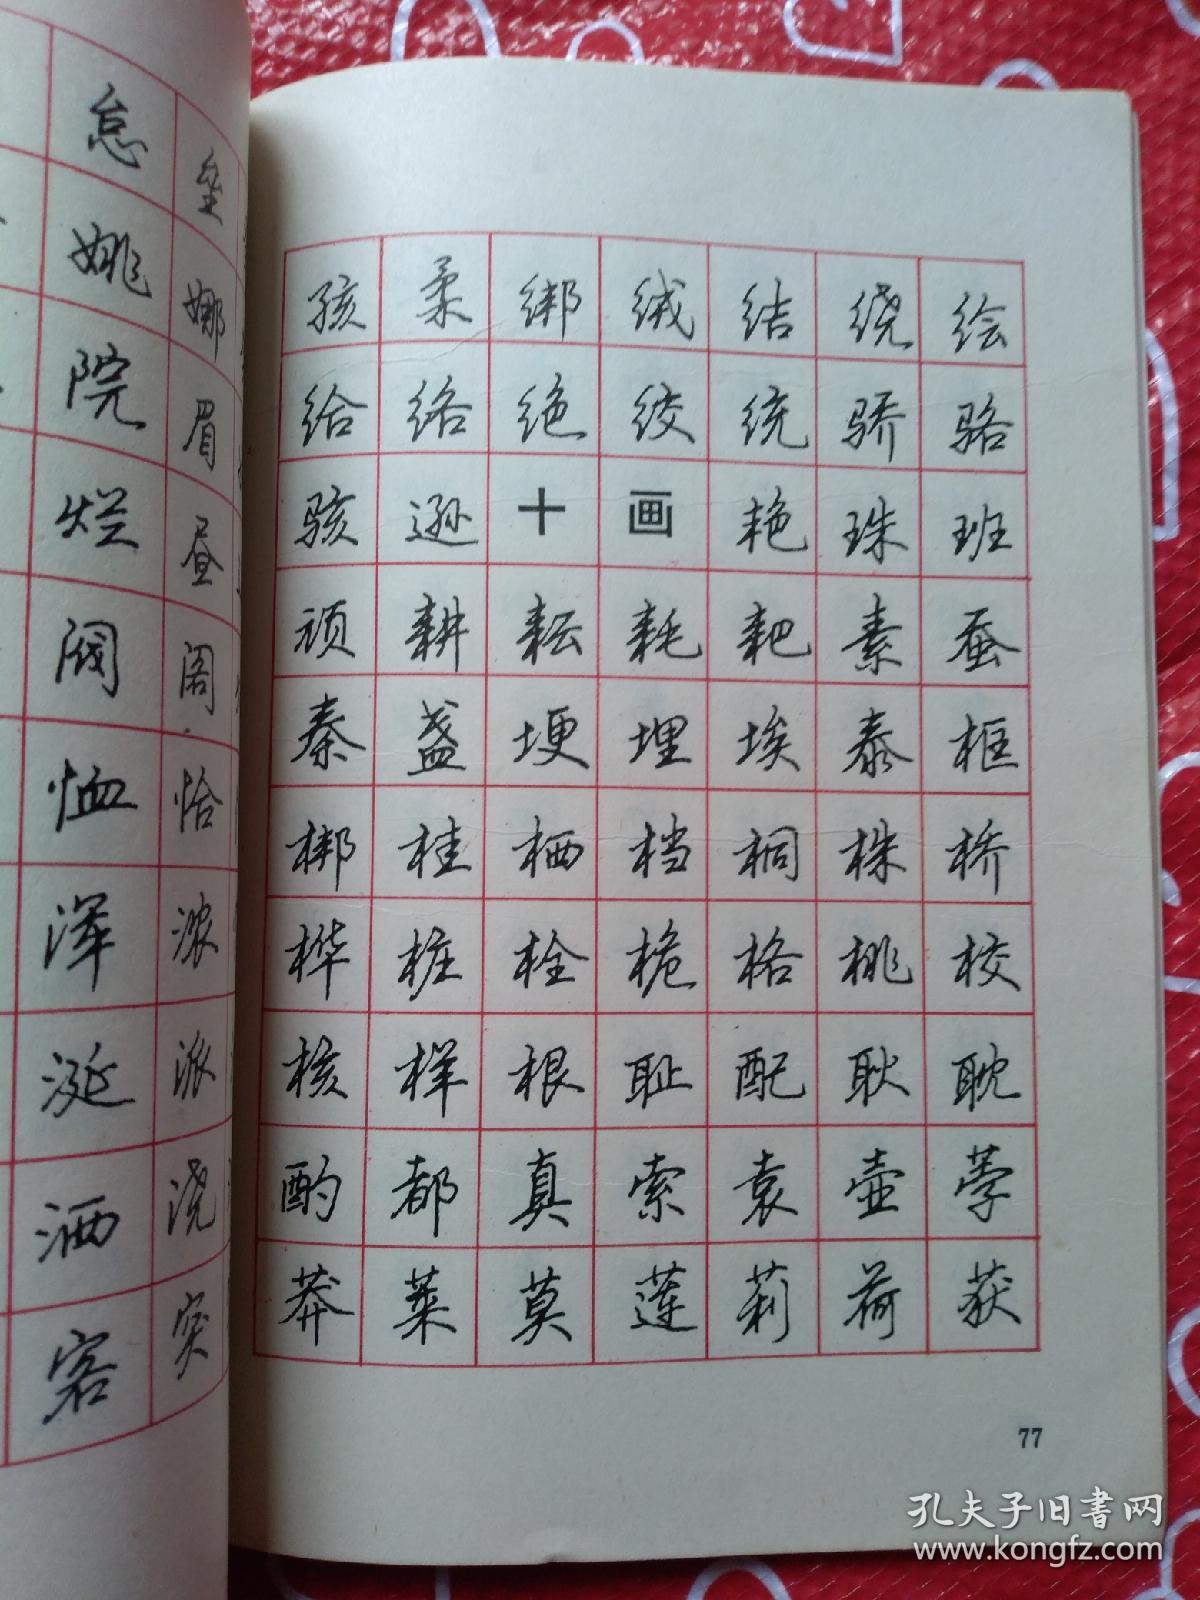 怠 垒
姚 娜
院 眉
烂 昼
阀 阁
恤 恰
浑 浓
涎 派
洒 浇
客 突
孩 柔 绑 绒 结 绕 绘
给 络 绝 绞 统 骄 骆
骇 逊 十 画 艳 珠 班
顽 耕 耘 耗 耙 素 蚕
秦 盏 埂 埋 埃 泰 框
梆 桂 栖 档 桐 株 桥
桦 桩 栓 桅 格 桃 校
核 样 根 耻 配 耿 耽
酌 都 真 索 袁 壶 莩
莽 莱 莫 莲 莉 荷 获
77
孔夫子旧书网
www.kongfz.com